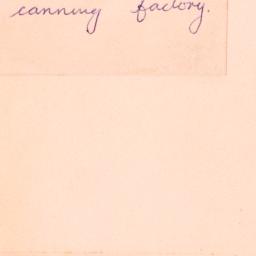 canning factory.